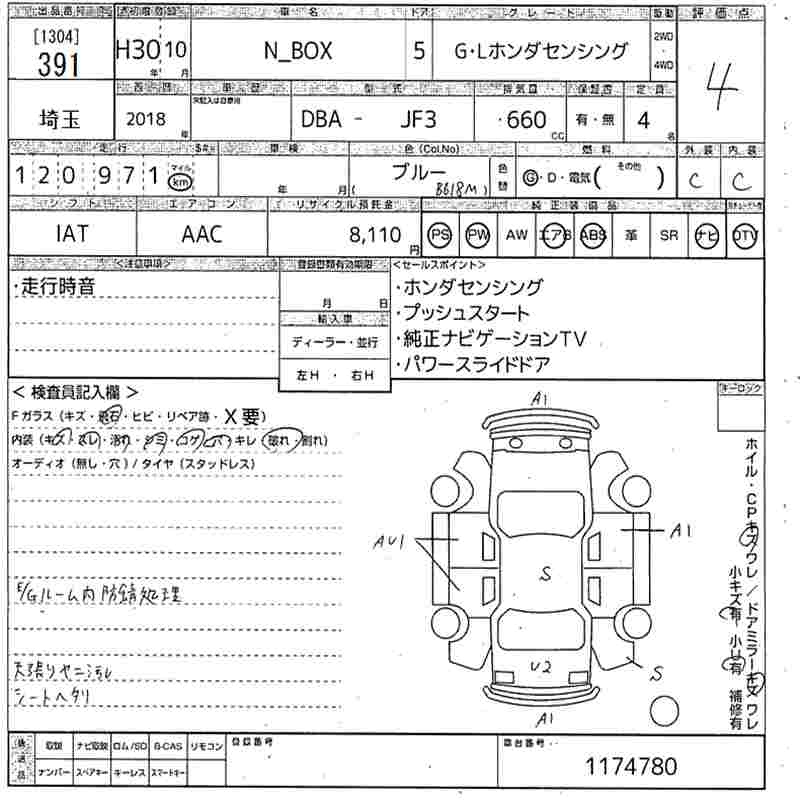 出品番号 初度登録 車名 ドア グレード 駆動 評価点
[1304]
391 H30 10 N_BOX 5 G・Lホンダセンシング 2WD ・ 4WD 4
年 月
車歴 型式 排気量 保証書 定員
埼玉 2018 年 未記入は自家用 DBA - JF3 660 CC 有・無 4 名
走行 車検 色(Col.No) 燃料 外装 内装
120971 マイル km 年 月 ブルー (B618M) 色替 G・D・電気( その他 ) C C
シフト エアコン リサイクル預託金 純正装備品
IAT AAC 8,110 円 PS PW AW エアB ABS 革 SR ナビ DTV
<注意事項> 登録書類有効期限 <セールスポイント>
・走行時音 月 日 ・ホンダセンシング
輸入車 ・プッシュスタート
ディーラー・並行 ・純正ナビゲーションTV
左H ・ 右H ・パワースライドドア
< 検査員記入欄 > キーロック
Fガラス (キズ・飛石・ヒビ・リペア跡・X要)
内装 (キズ・スレ・汚れ・シミ・コゲ・穴・キレ・破れ・割れ)
オーディオ (無し・穴) / タイヤ (スタッドレス)
E/Gルーム内防錆処理
天張りヤニ汚レ
シートヘタリ
A1
AU1
A1
S
U2
S
A1
ホイル・CPキズワレ / ドアミラーキズワレ
小キズ有 小U有 補修有
後送品 取説 ナビ取説 ロム/SD B-CAS リモコン 登録番号 車台番号
ナンバー スペアキー キーレス スマートキー 1174780